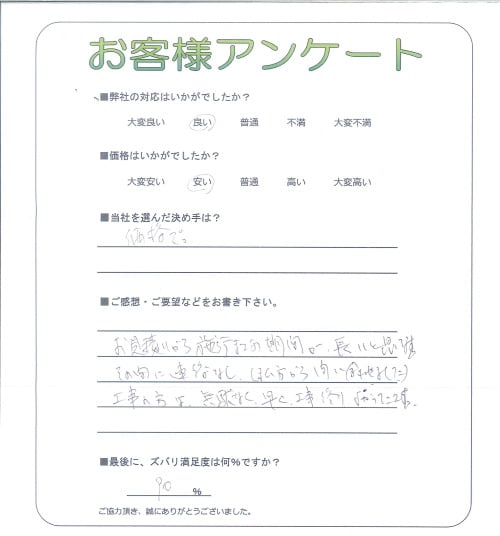 お客様アンケート
■弊社の対応はいかがでしたか？
大変良い 良い 普通 不満 大変不満
■価格はいかがでしたか？
大変安い 安い 普通 高い 大変高い
■当社を選んだ決め手は？
価格で。
■ご感想・ご要望などをお書き下さい。
お見積りから施行までの期間が、長いと
その間に連絡なし、
工事の方は、無駄なく、早く、工事
■最後に、ズバリ満足度は何%ですか？
90 %
ご協力頂き、誠にありがとうございました。